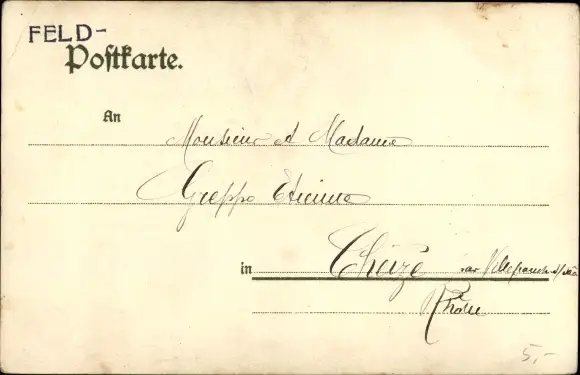 FELD-
Postkarte.
An
Monsieur et Madame
Greppo Etienne
in Theizé par Villefranche s/Saô
Rhône
5,-